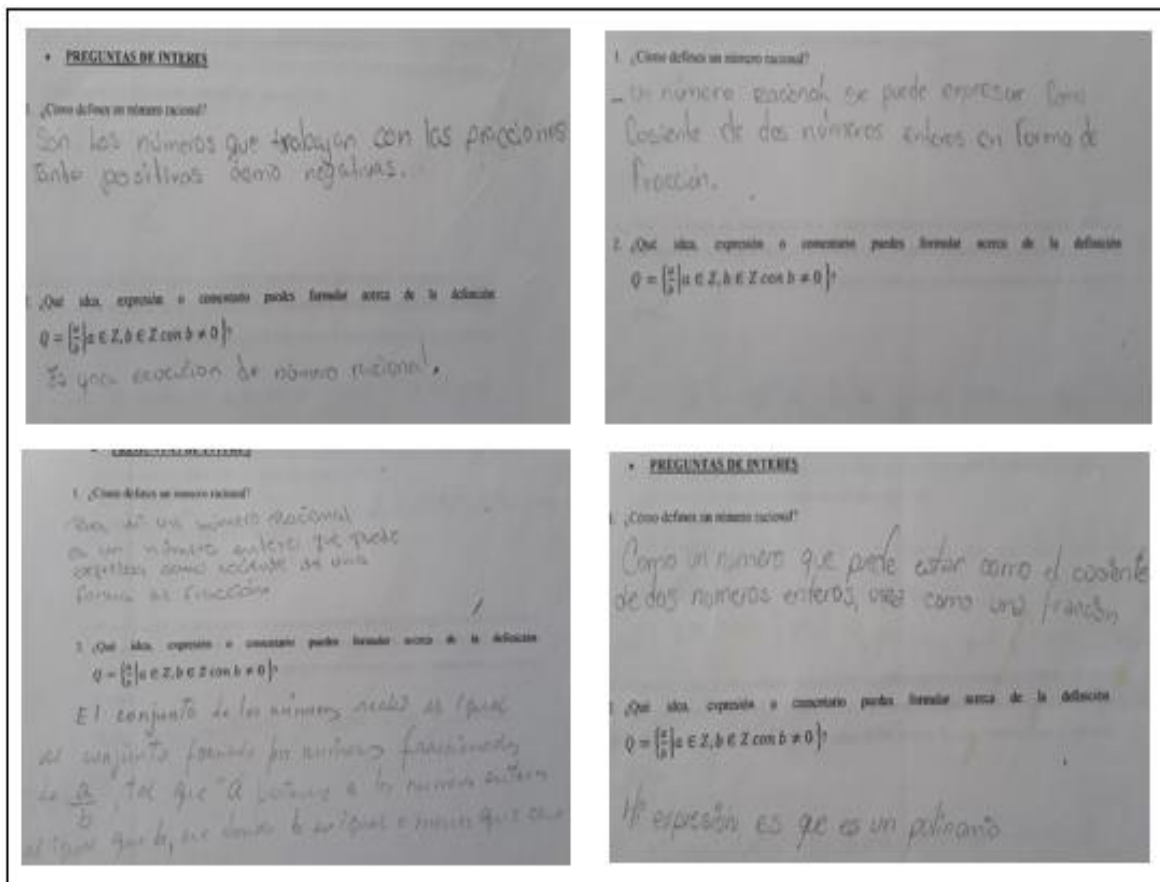 • PREGUNTAS DE INTERES
1. ¿Cómo defines un número racional?
Son los números que trabajan con las fracciones
tanto positivas como negativas.
¿Qué idea, expresión o comentario puedes formular acerca de la definición
Q = {a/b | a ∈ Z, b ∈ Z con b ≠ 0}?
Es una de número racional.
1. ¿Cómo defines un número racional?
- Un número racional se puede expresar como
Cosiente de dos números enteros en forma de
fracción.
2. ¿Qué idea, expresión o comentario puedes formular acerca de la definición
Q = {a/b | a ∈ Z, b ∈ Z con b ≠ 0}?
• PREGUNTAS DE INTERES
1. ¿Cómo defines un número racional?
un número Racional
es un número entero que puede
como de una
forma de fracción
2. ¿Qué idea, expresión o comentario puedes formular acerca de la definición
Q = {a/b | a ∈ Z, b ∈ Z con b ≠ 0}?
El conjunto de los números es igual
al conjunto formado por números
de a/b, tal que "a a los números enteros
al igual que b, en donde b es igual o que
• PREGUNTAS DE INTERES
¿Cómo defines un número racional?
Como un numero que puede estar como el cosiente
de dos numeros enteros, como una fracción
¿Qué idea, expresión o comentario puedes formular acerca de la definición
Q = {a/b | a ∈ Z, b ∈ Z con b ≠ 0}?
Mi expresión es que es un polinomio